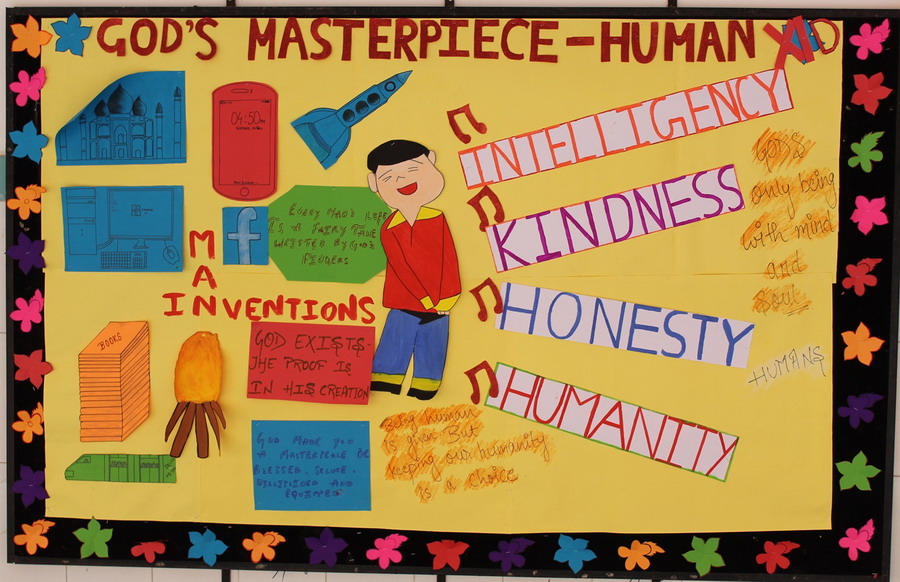 GOD'S MASTERPIECE-HUMAN XI D
04:50PM
f
EVERY MAN'S LIFE
IS A FAIRY TALE
WRITTEN BY GOD'S
FINGERS
MAN
INVENTIONS
BOOKS
GOD EXISTS-
THE PROOF IS
IN HIS CREATION
GOD MADE YOU
A MASTERPIECE BE
BLESSED. SECURE.
DISCIPLINED AND
EQUIPPED
INTELLIGENCY
KINDNESS
HONESTY
HUMANITY
God's
only being
with mind
and
Soul
HUMANS
Being human
is given But
keeping our humanity
is a choice